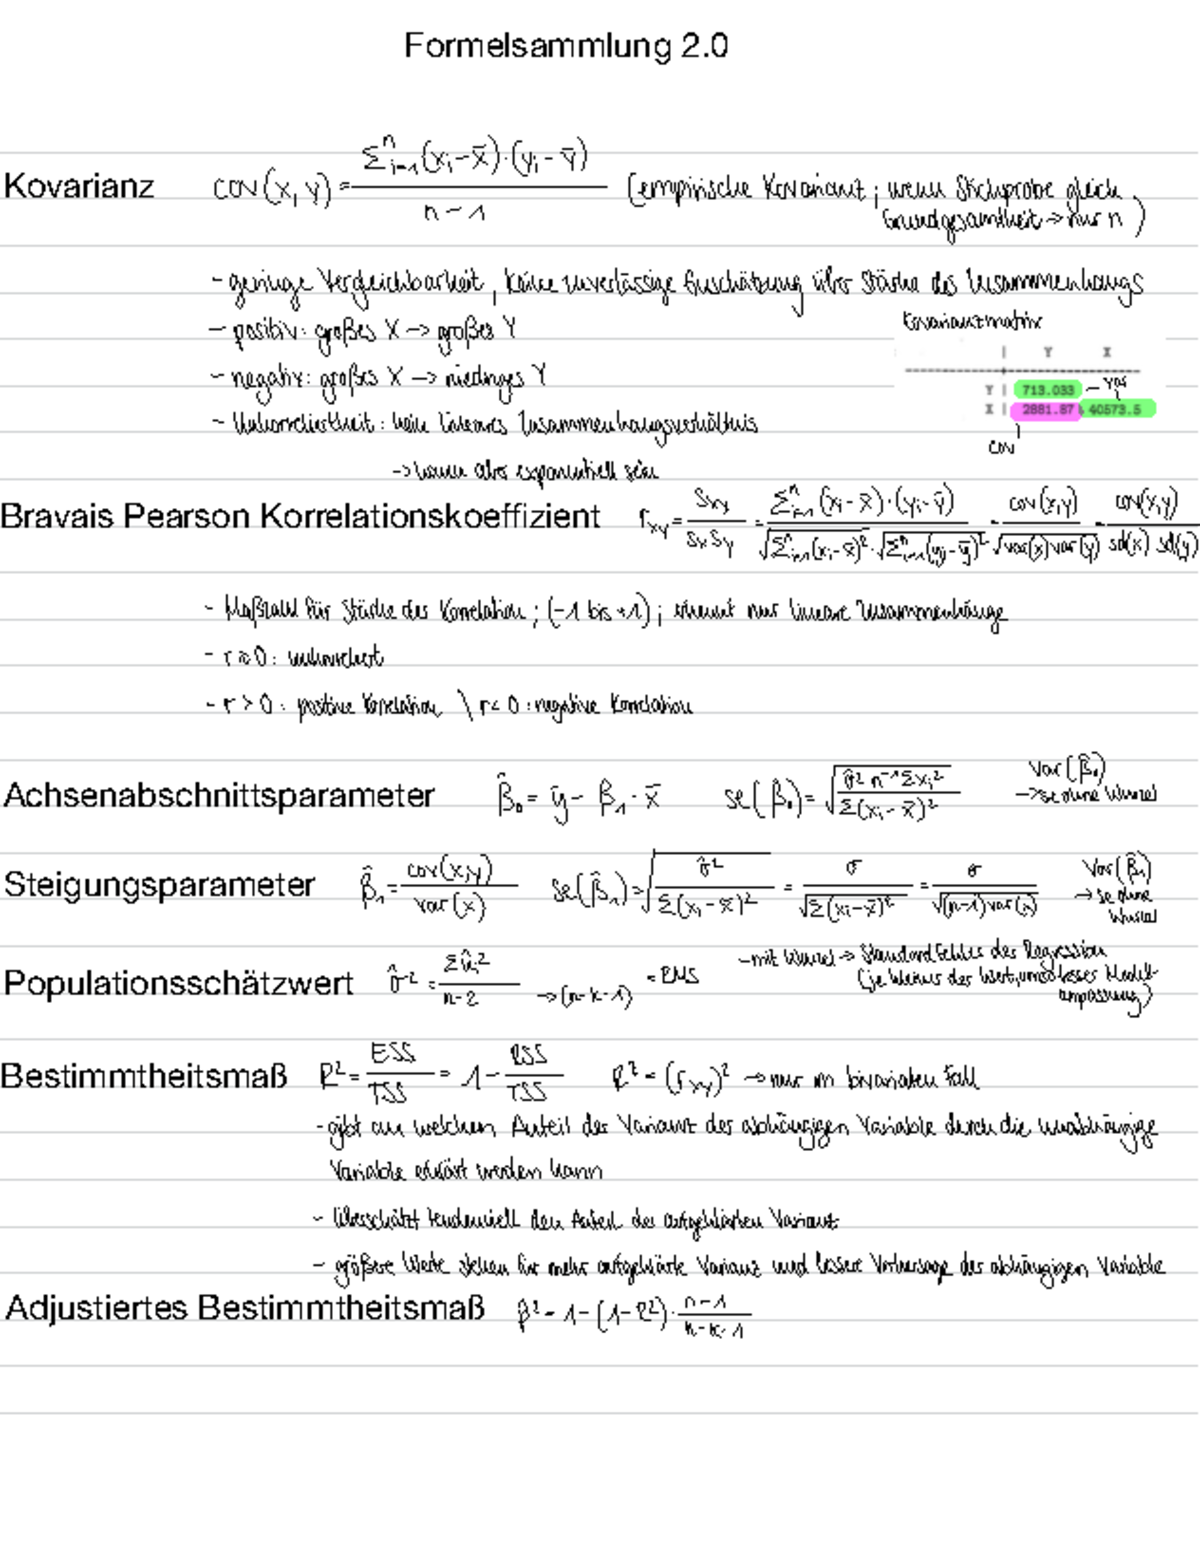 Formelsammlung 2.0
Kovarianz cov(x,y) = Σⁿᵢ₌₁(xᵢ-x̄)·(yᵢ-ȳ) / n-1 (empirische Kovarianz; wenn Stichprobe gleich
Grundgesamtheit -> nur n)
- geringe Vergleichbarkeit, keine zuverlässige Einschätzung über Stärke des Zusammenhangs
- positiv: großes X -> großes Y
Kovarianzmatrix
| Y X
- negativ: großes X -> niedriges Y
Y | 713.033 - var
X | 2881.87 40573.5
- Unkorreliertheit: kein lineares Zusammenhangsverhältnis
cov
-> kann aber exponentiell sein
Bravais Pearson Korrelationskoeffizient r_xy = S_xy / S_x S_y = Σⁿᵢ₌₁(xᵢ-x̄)·(yᵢ-ȳ) / √Σⁿᵢ₌₁(xᵢ-x̄)²·√Σⁿᵢ₌₁(yᵢ-ȳ)² = cov(x,y) / √var(x)var(y) = cov(x,y) / sd(x) sd(y)
- Maßzahl für Stärke der Korrelation; (-1 bis +1); erkennt nur lineare Zusammenhänge
- r≈0: unkorreliert
- r>0: positive Korrelation \ r<0: negative Korrelation
Achsenabschnittsparameter β̂₀ = ȳ - β₁·x̄ se(β̂₀) = √(σ̂² n⁻¹ Σxᵢ² / Σ(xᵢ-x̄)²) Var(β̂₀)
-> se ohne Wurzel
Steigungsparameter β̂₁ = cov(x,y) / var(x) se(β̂₁) = √(σ̂² / Σ(xᵢ-x̄)²) = σ / √Σ(xᵢ-x̄)² = σ / √(n-1)var(x) Var(β̂₁)
-> se ohne
Wurzel
Populationsschätzwert σ̂² = Σûᵢ² / n-2 -> (n-k-1) = RMS - mit Wurzel -> Standardfehler der Regression
(je kleiner der Wert, umso besser Modell-
anpassung)
Bestimmtheitsmaß R² = ESS / TSS = 1 - RSS / TSS R² = (r_xy)² -> nur im bivariaten Fall
- gibt an welchen Anteil der Varianz der abhängigen Variable durch die unabhängige
Variable erklärt werden kann
- überschätzt tendenziell den Anteil der aufgeklärten Varianz
- größere Werte stehen für mehr aufgeklärte Varianz und bessere Vorhersage der abhängigen Variable
Adjustiertes Bestimmtheitsmaß R̄² = 1-(1-R²)· n-1 / n-k-1